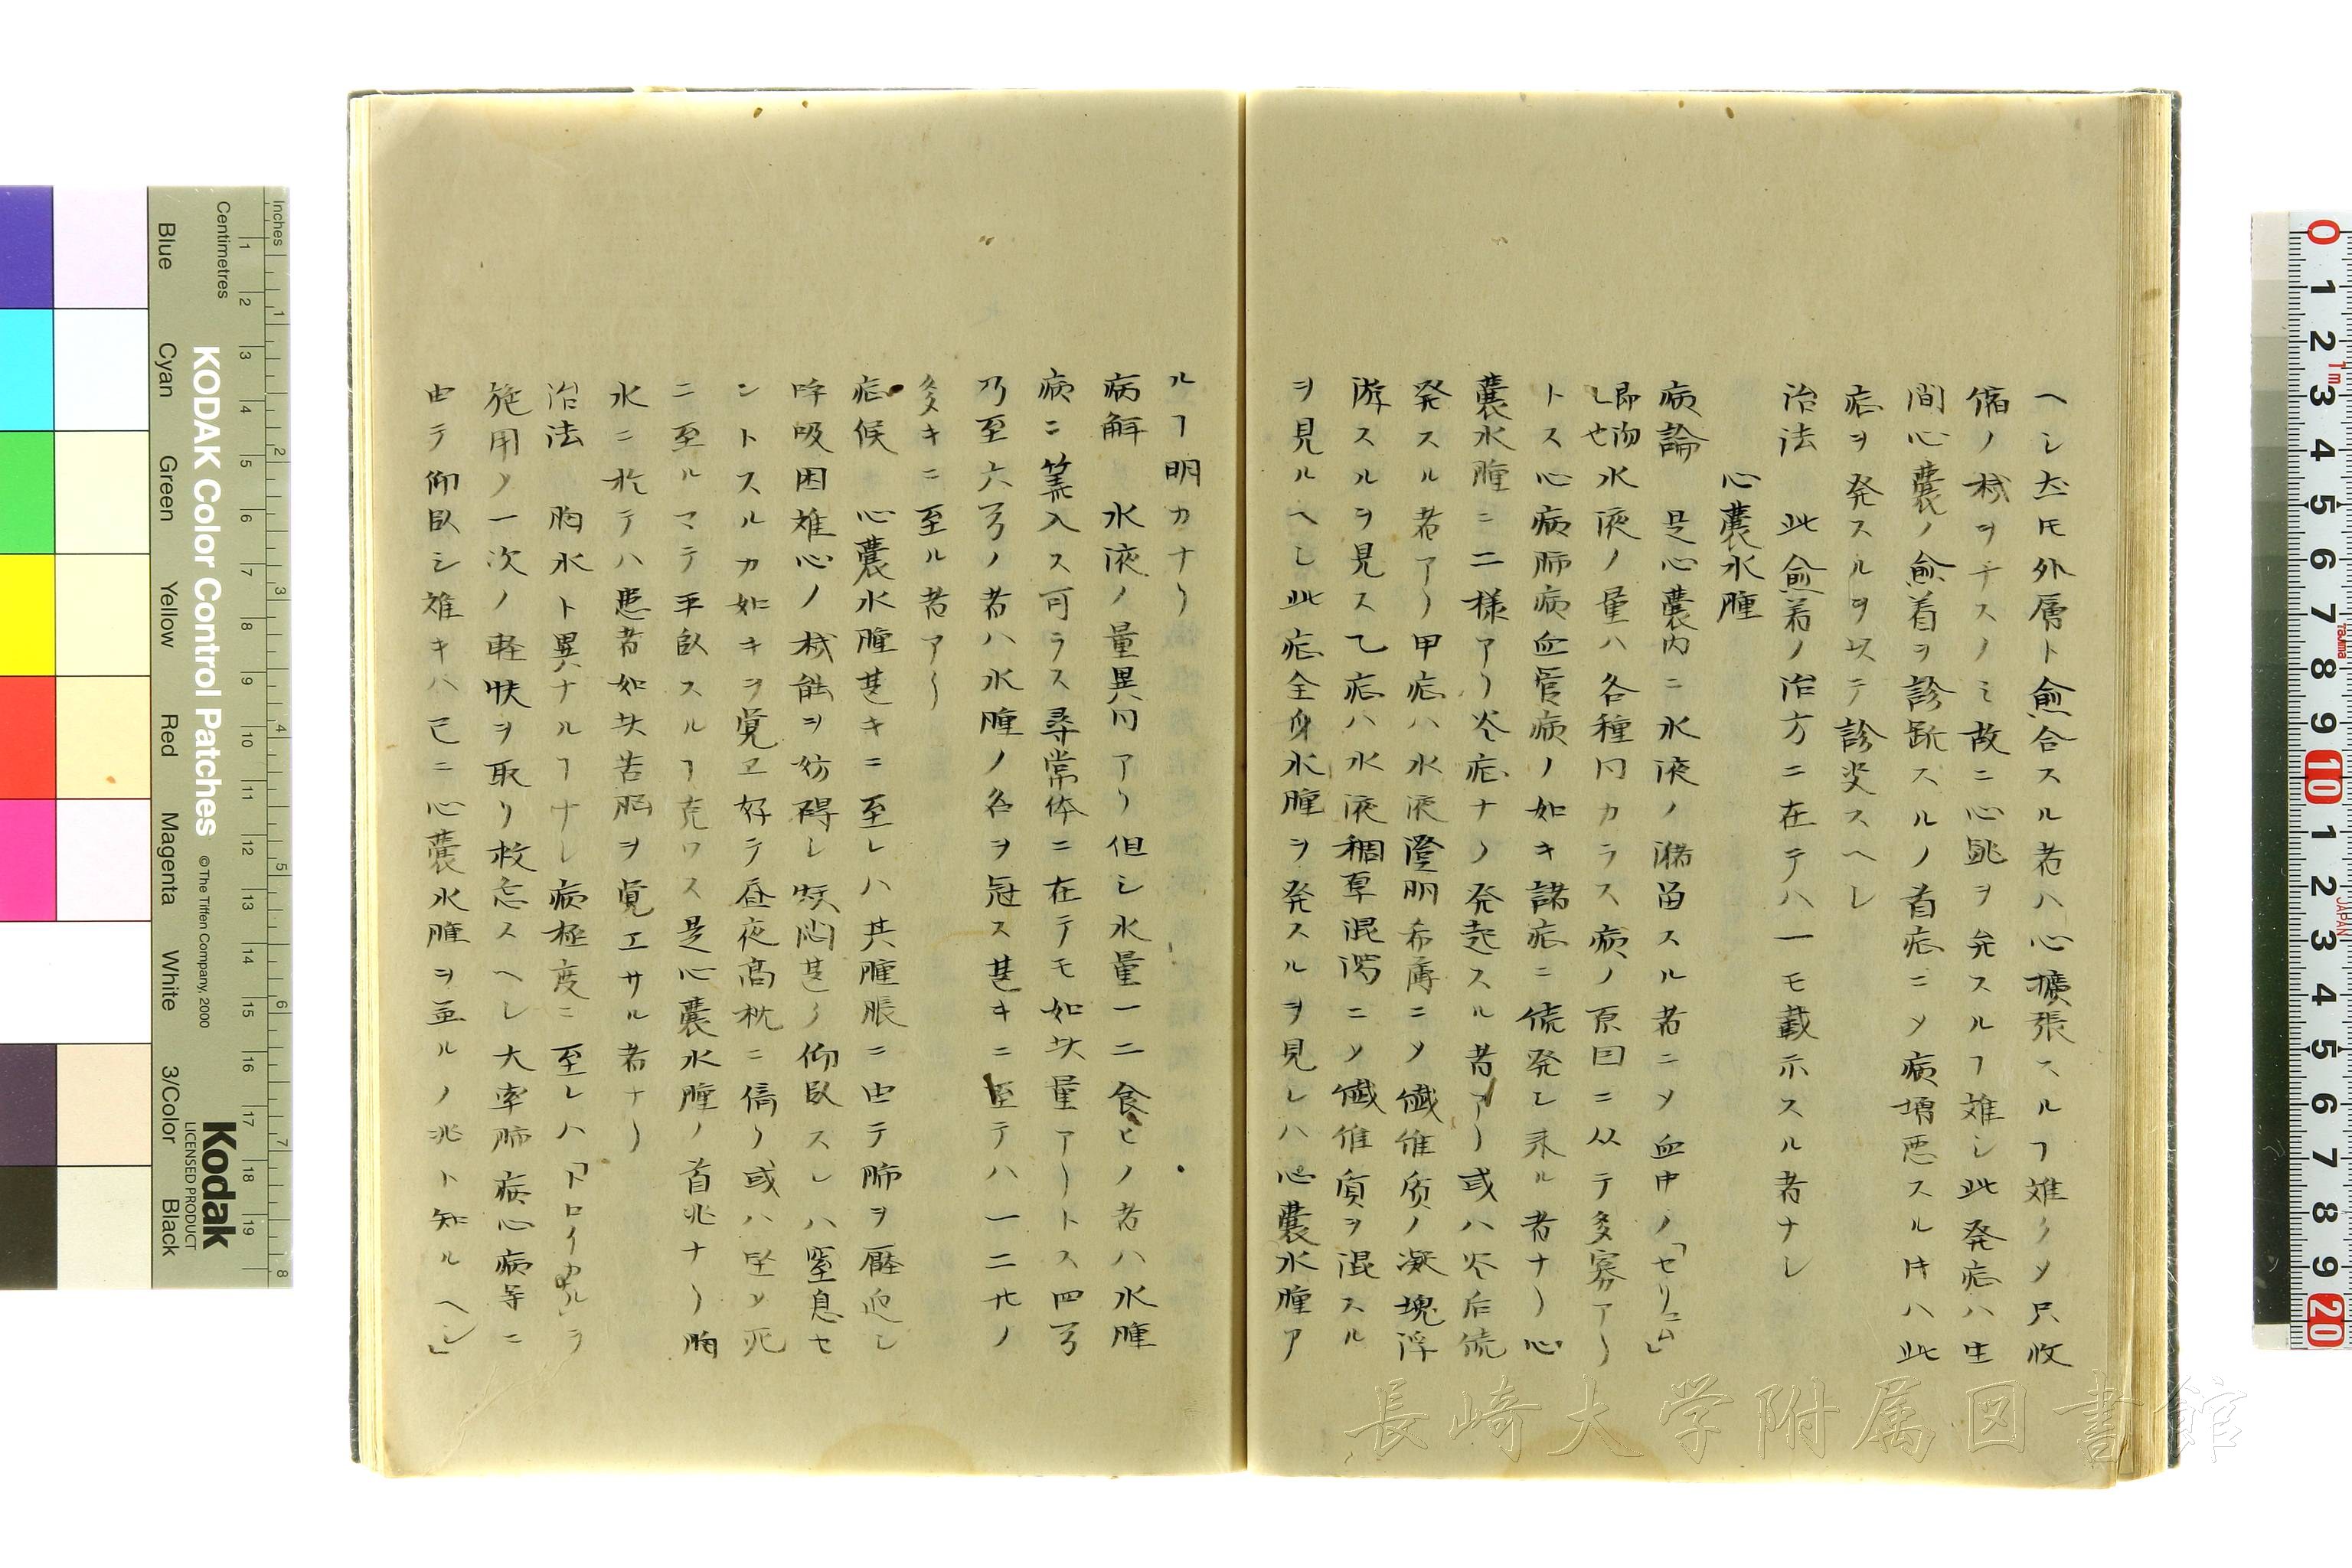 ヘシ尤モ外層ト愈合スル者ハ心擴張スルヿ難クメ只收
縮ノ機ヲナスノミ故ニ心跳ヲ弁スルヿ難シ此発症ハ生
間心嚢ノ愈着ヲ診断スルノ首症ニメ病増悪スル時ハ此
症ヲ発スルヲ以テ診定スヘシ
治法　此愈着ノ治方ニ在テハ一モ載示スル者ナシ
心嚢水腫
病論　是心嚢内ニ水液ノ瀦畄スル者ニメ血中ノ「セリーム」
即物也水液ノ量ハ各種同カラス病ノ原因ニ从テ多寡アリ
トス心病肺病血管病ノ如キ諸症ニ続発シ来ル者ナリ心
嚢水腫ニ二様アリ炎症ナク発起スル者アリ或ハ炎后続
発スル者アリ甲症ハ水液澄明希薄ニメ繊維質ノ凝塊浮
游スルヲ見ス乙症ハ水液稠厚混濁ニメ繊維質ヲ混スル
ヲ見ルヘシ此症全身水腫ヲ発スルヲ見レハ心嚢水腫ア
ルヿ明カナリ
病解　水液ノ量異同アリ但シ水量一二食ヒノ者ハ水腫
病ニ算入ス可ラス尋常体ニ在テモ如此量アリトス四弓
乃至六弓ノ者ハ水腫ノ名ヲ冠ス甚キニ至テハ一二卄ノ
多キニ至ル者アリ
症候　心嚢水腫甚キニ至レハ其腫脹ニ由テ肺ヲ壓迫シ
呼吸困難心ノ機能ヲ妨碍シ煩悶甚ク仰臥スレハ窒息セ
ントスルカ如キヲ覚ヱ好テ昼夜高枕ニ倚リ或ハ坐メ死
ニ至ルマテ平臥スルヿ克ワス是心嚢水腫ノ首兆ナリ胸
水ニ於テハ患者如此苦悩ヲ覚エサル者ナリ
治法　胸水ト異ナルヿナシ病極度ニ至レハ「トロイカル」ヲ
施用メ一次ノ軽快ヲ取リ救急スヘシ大率肺病心病等ニ
由テ仰臥シ難キハ已ニ心嚢水腫ヲ並ルノ兆ト知ルヘシ」
長崎大学附属図書館
KODAK Color Control Patches
© The Tiffen Company, 2000
Kodak
LICENSED PRODUCT
Inches
Centimetres
Blue
Cyan
Green
Yellow
Red
Magenta
White
3/Color
Black